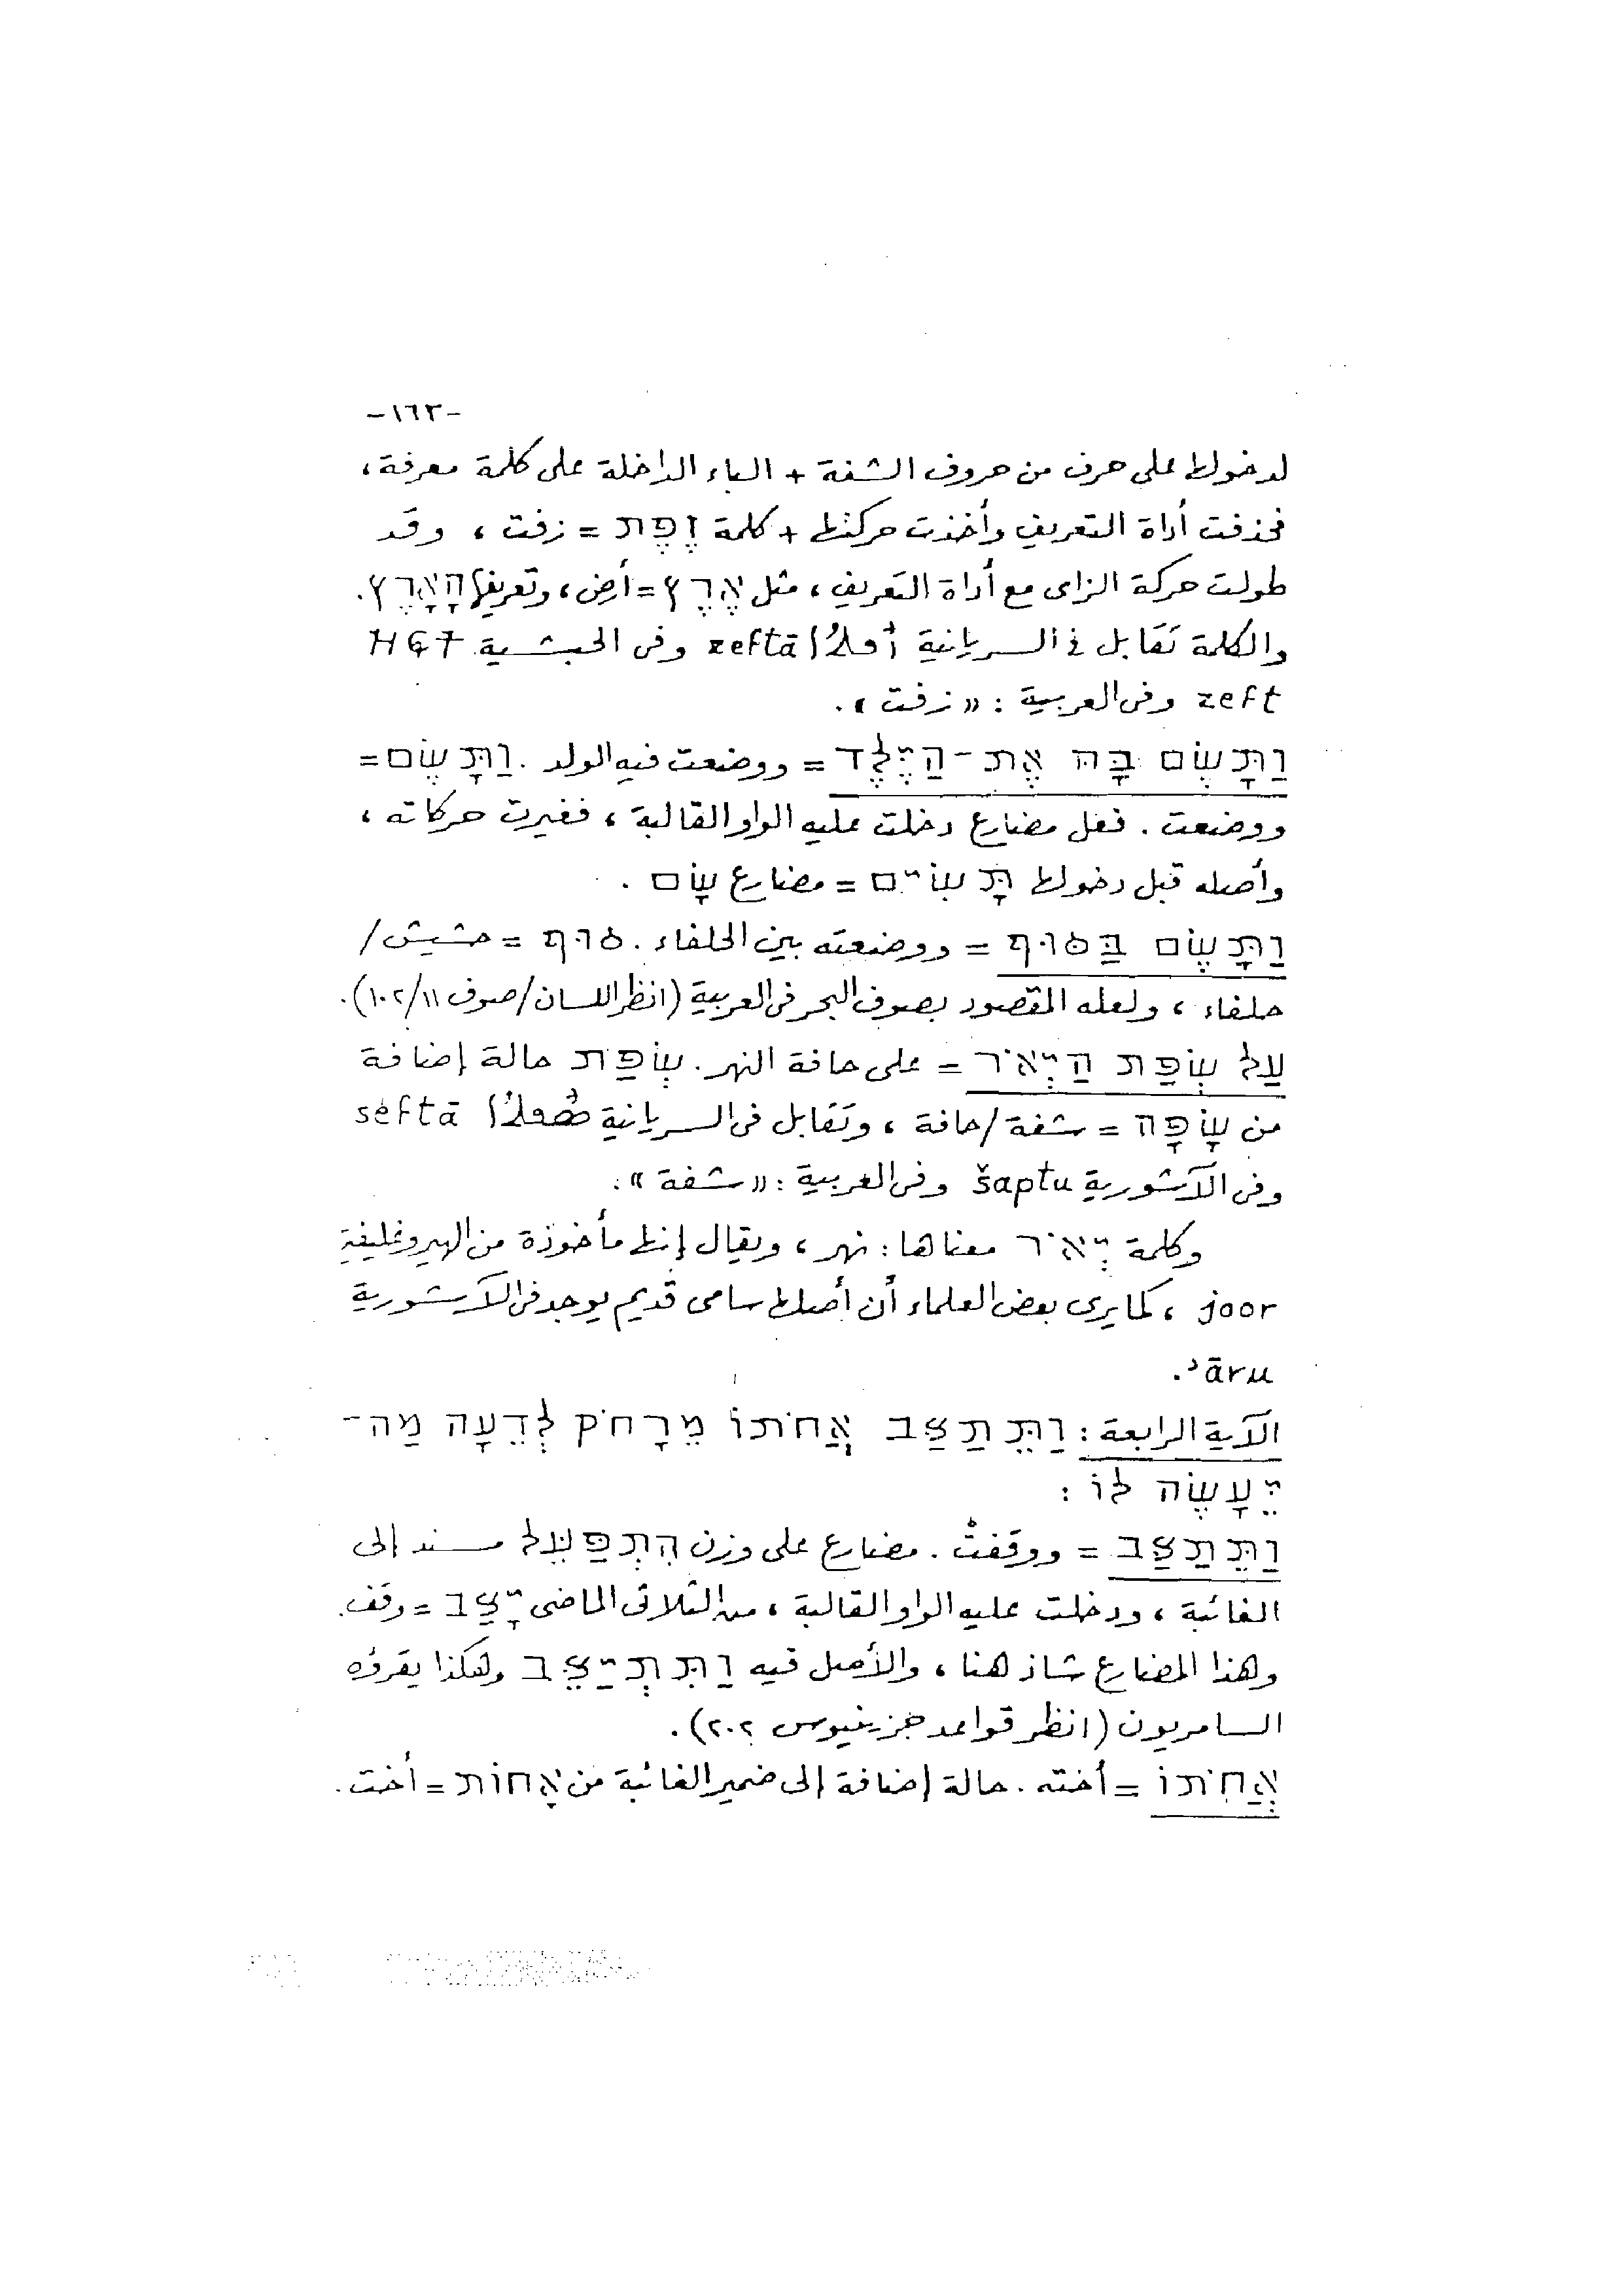 -١٦٣-
لدخولها على حرف من حروف الشفة + الباء الداخلة على كلمة معرفة،
فحذفت أداة التعريف وأخذت حركتها + كلمة זֶפֶת = زفت، وقد
طولت حركة الزاى مع أداة التعريف، مثل אֶרֶץ = أرض، وتعريفها הָאָרֶץ.
والكلمة تقابل فى السريانية ܙܶܦܬܳܐ zeftā وفى الحبشية ዝፍት
zeft وفى العربية: «زفت».
וַתָּשֶׂם בָּהּ אֶת-הַיֶּלֶד = ووضعت فيه الولد. וַתָּשֶׂם =
ووضعت. فعل مضارع دخلت عليه الواو القالبة، فغيرت حركاته،
وأصله قبل دخولها תָּשׂים = مضارع שָׂם.
וַתָּשֶׂם בַּסּוּף = ووضعته بين الحلفاء. סוּף = حشيش/
حلفاء، ولعله المقصود بصوف البحر فى العربية (انظر اللسان/صوف ١١/١٠٢).
עַל שְׂפַת הַיְּאֹר = على حافة النهر. שְׂפַת حالة إضافة
من שָׂפָה = شفة/حافة، وتقابل فى السريانية ܣܶܦܬܳܐ sèftā
وفى الآشورية šaptu وفى العربية: «شفة».
وكلمة יְאֹר معناها: نهر، ويقال إنها مأخوذة من الهيروغليفية
joor، كما يرى بعض العلماء أن أصلها سامى قديم يوجد فى الآشورية
ʾāru.
الآية الرابعة: וַתֵּתַצַּב אֲחֹתוֹ מֵרָחֹק לְדֵעָה מַה-
יֵּעָשֶׂה לוֹ:
וַתֵּתַצַּב = ووقفتْ. مضارع على وزن הִתְפַּעֵל مسند إلى
الغائبة، ودخلت عليه الواو القالبة، من الثلاثى الماضى יָצַב = وقف.
وهذا المضارع شاذ هنا، والأصل فيه וַתִּתְיַצֵּב وهكذا يقرؤه
السامريون (انظر قواعد جزينيوس ٢٠٢).
אֲחֹתוֹ = أخته. حالة إضافة إلى ضمير الغائبة من אָחוֹת = أخت.